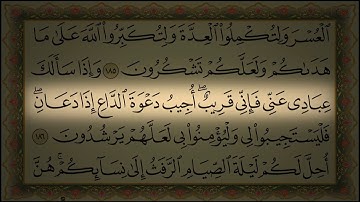 ٱلْعُسْرَ وَلِتُكْمِلُوا۟ ٱلْعِدَّةَ وَلِتُكَبِّرُوا۟ ٱللَّهَ عَلَىٰ مَا
هَدَىٰكُمْ وَلَعَلَّكُمْ تَشْكُرُونَ ١٨٥ وَإِذَا سَأَلَكَ
عِبَادِى عَنِّى فَإِنِّى قَرِيبٌ ۖ أُجِيبُ دَعْوَةَ ٱلدَّاعِ إِذَا دَعَانِ ۖ
فَلْيَسْتَجِيبُوا۟ لِى وَلْيُؤْمِنُوا۟ بِى لَعَلَّهُمْ يَرْشُدُونَ ١٨٦
أُحِلَّ لَكُمْ لَيْلَةَ ٱلصِّيَامِ ٱلرَّفَثُ إِلَىٰ نِسَآئِكُمْ ۚ هُنَّ